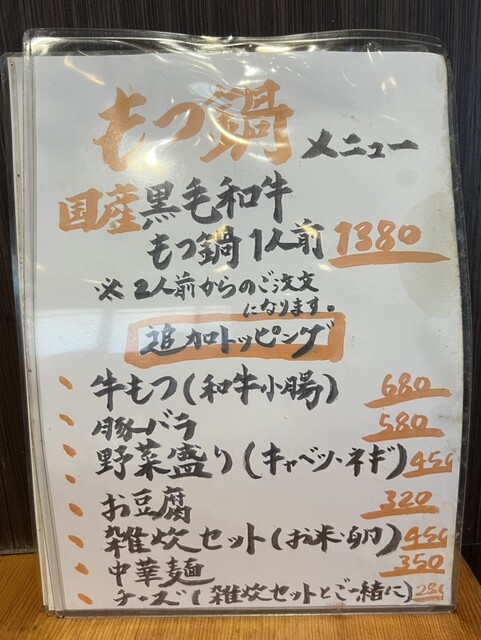 もつ鍋 メニュー
国産黒毛和牛
もつ鍋1人前 1380
※2人前からのご注文
になります。
追加トッピング
牛もつ(和牛小腸) 680
豚バラ 580
野菜盛り(キャベツ・ネギ) 450
お豆腐 320
雑炊セット(お米・卵) 450
中華麺 350
チーズ(雑炊セットとご一緒に)